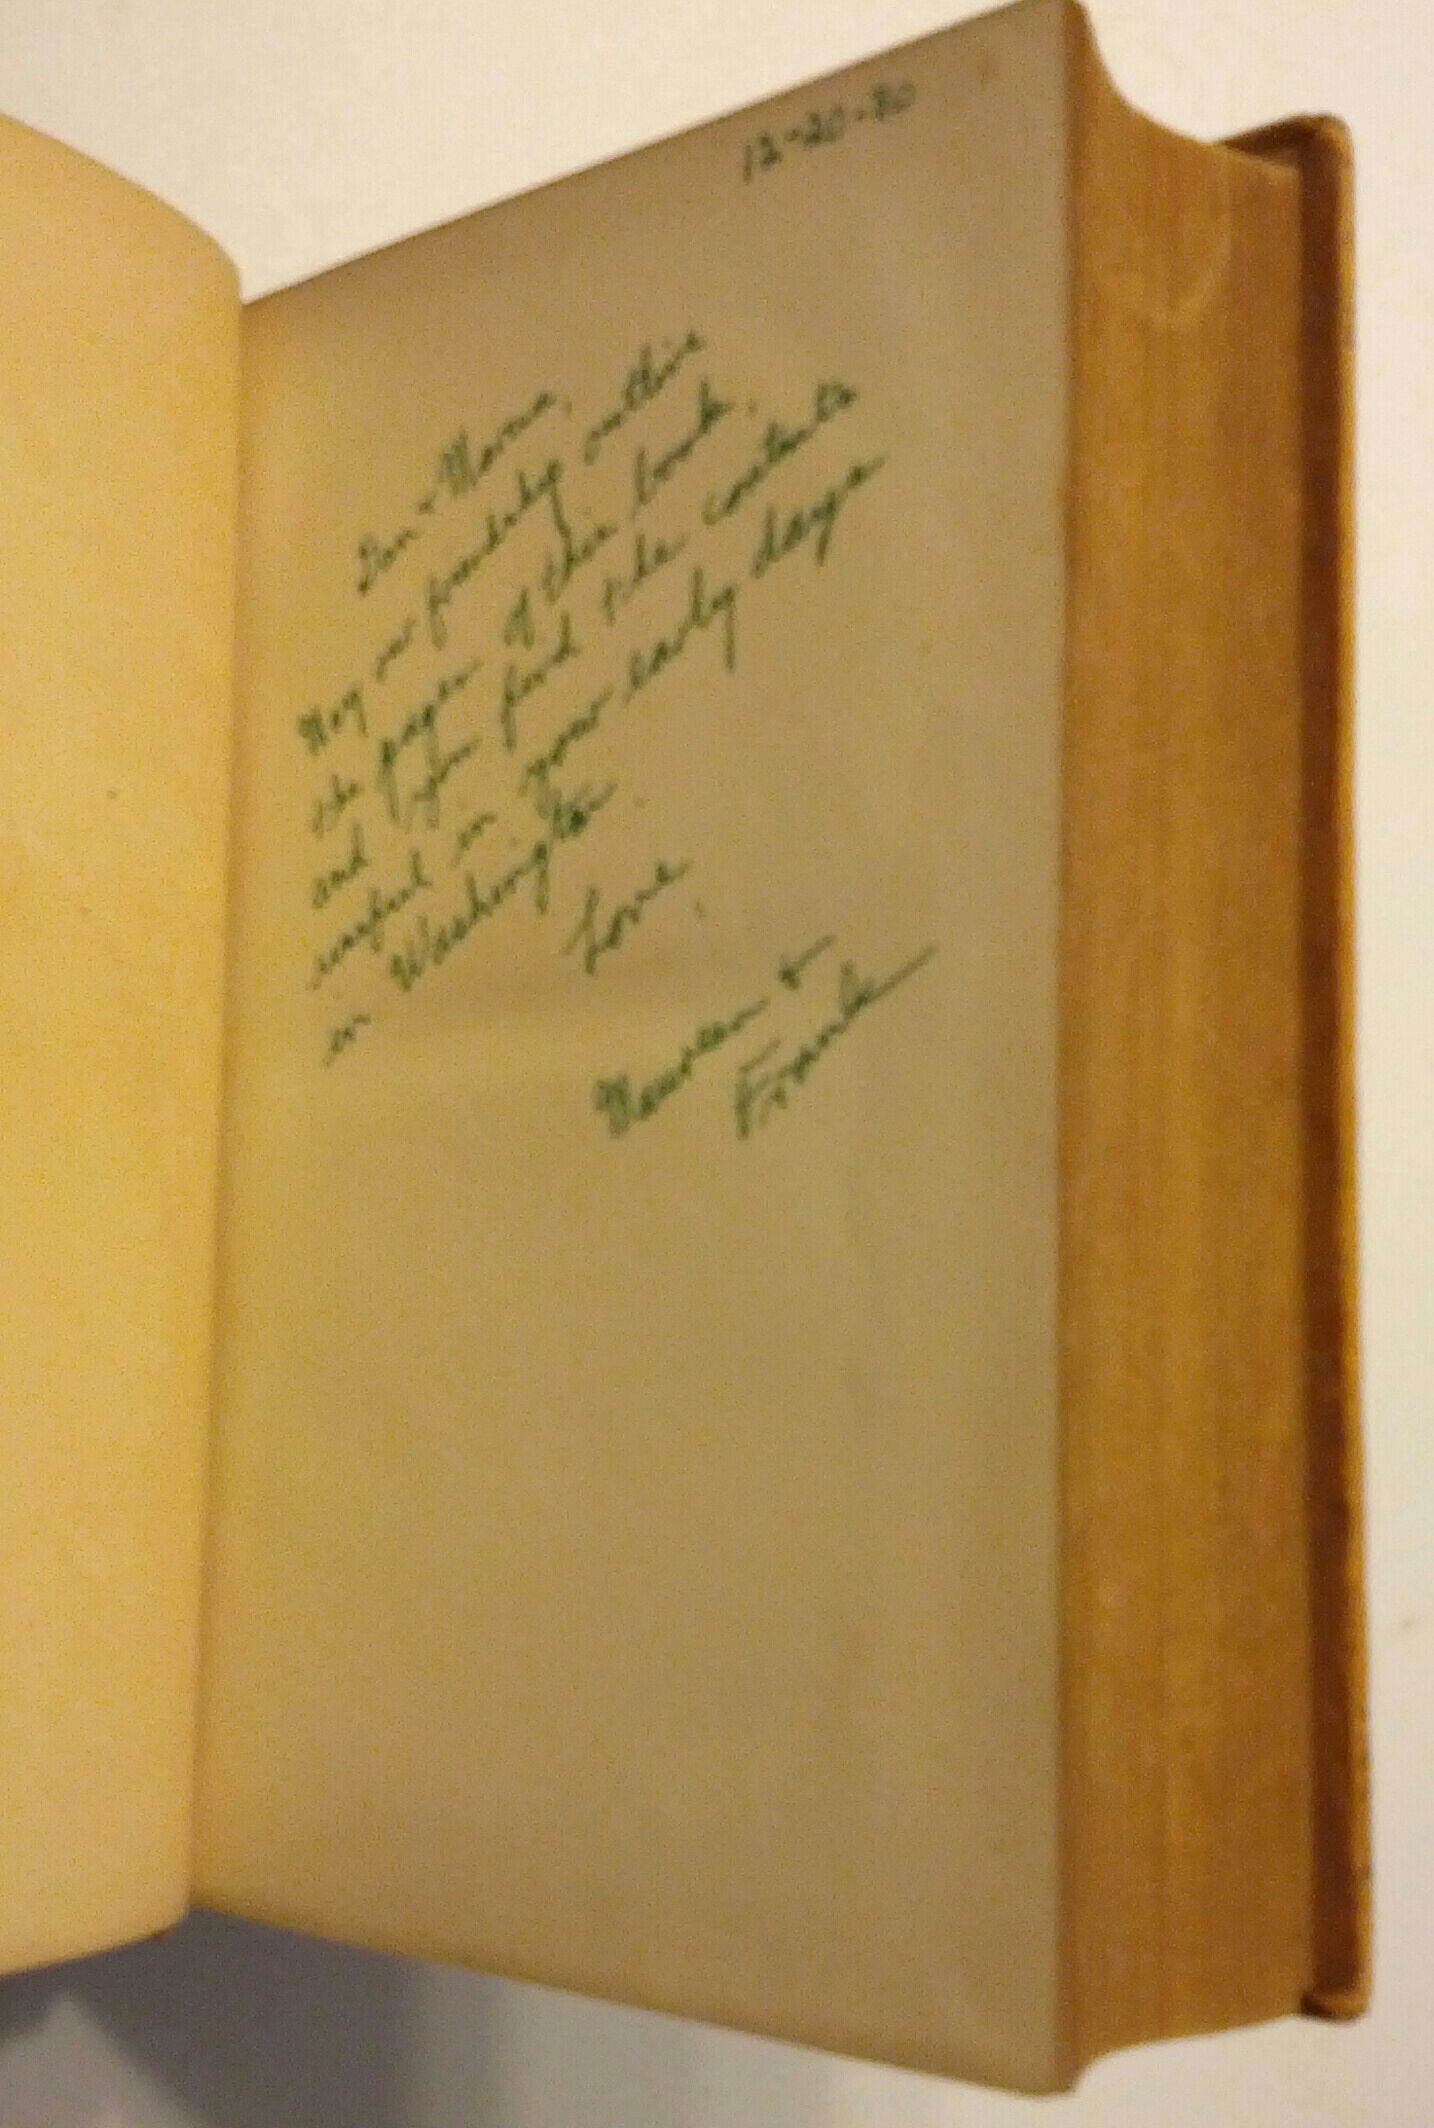 12-20-80
May our friendship outlive
the pages of this book,
and you find the contents
useful in your early days
in Washington.
Love,
Maureen +
Frank